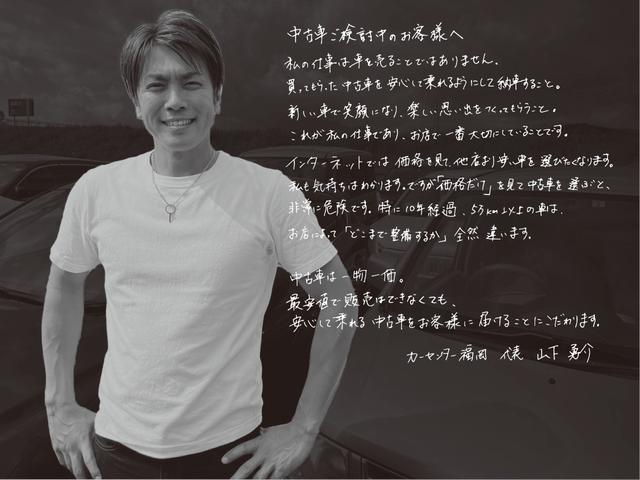 中古車ご検討中のお客様へ
私の仕事は車を売ることではありません。
買ってもらった中古車を安心して乗れるようにして納車すること。
新しい車で笑顔になり、楽しい思い出をつくってもらうこと。
これが私の仕事であり、お店で一番大切にしていることです。
インターネットでは価格を見て、他店より安い車を選びたくなります。
私も気持ちはわかります。ですが「価格だけ」を見て中古車を選ぶと、
非常に危険です。特に10年経過、5万km以上の車は、
お店によって「どこまで整備するか」全然違います。
中古車は一物一価。
最安値で販売はできなくても、
安心して乗れる中古車をお客様に届けることにこだわります。
カーセンター福岡 代表 山下 勇介